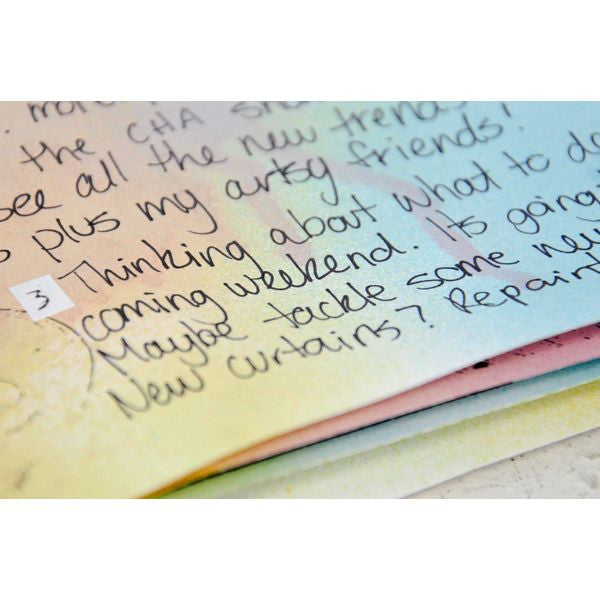 more
the CHA
see all the new trends
plus my artsy friends!
3 Thinking about what to do
coming weekend. Its going
Maybe tackle some new
New curtains? Repaint